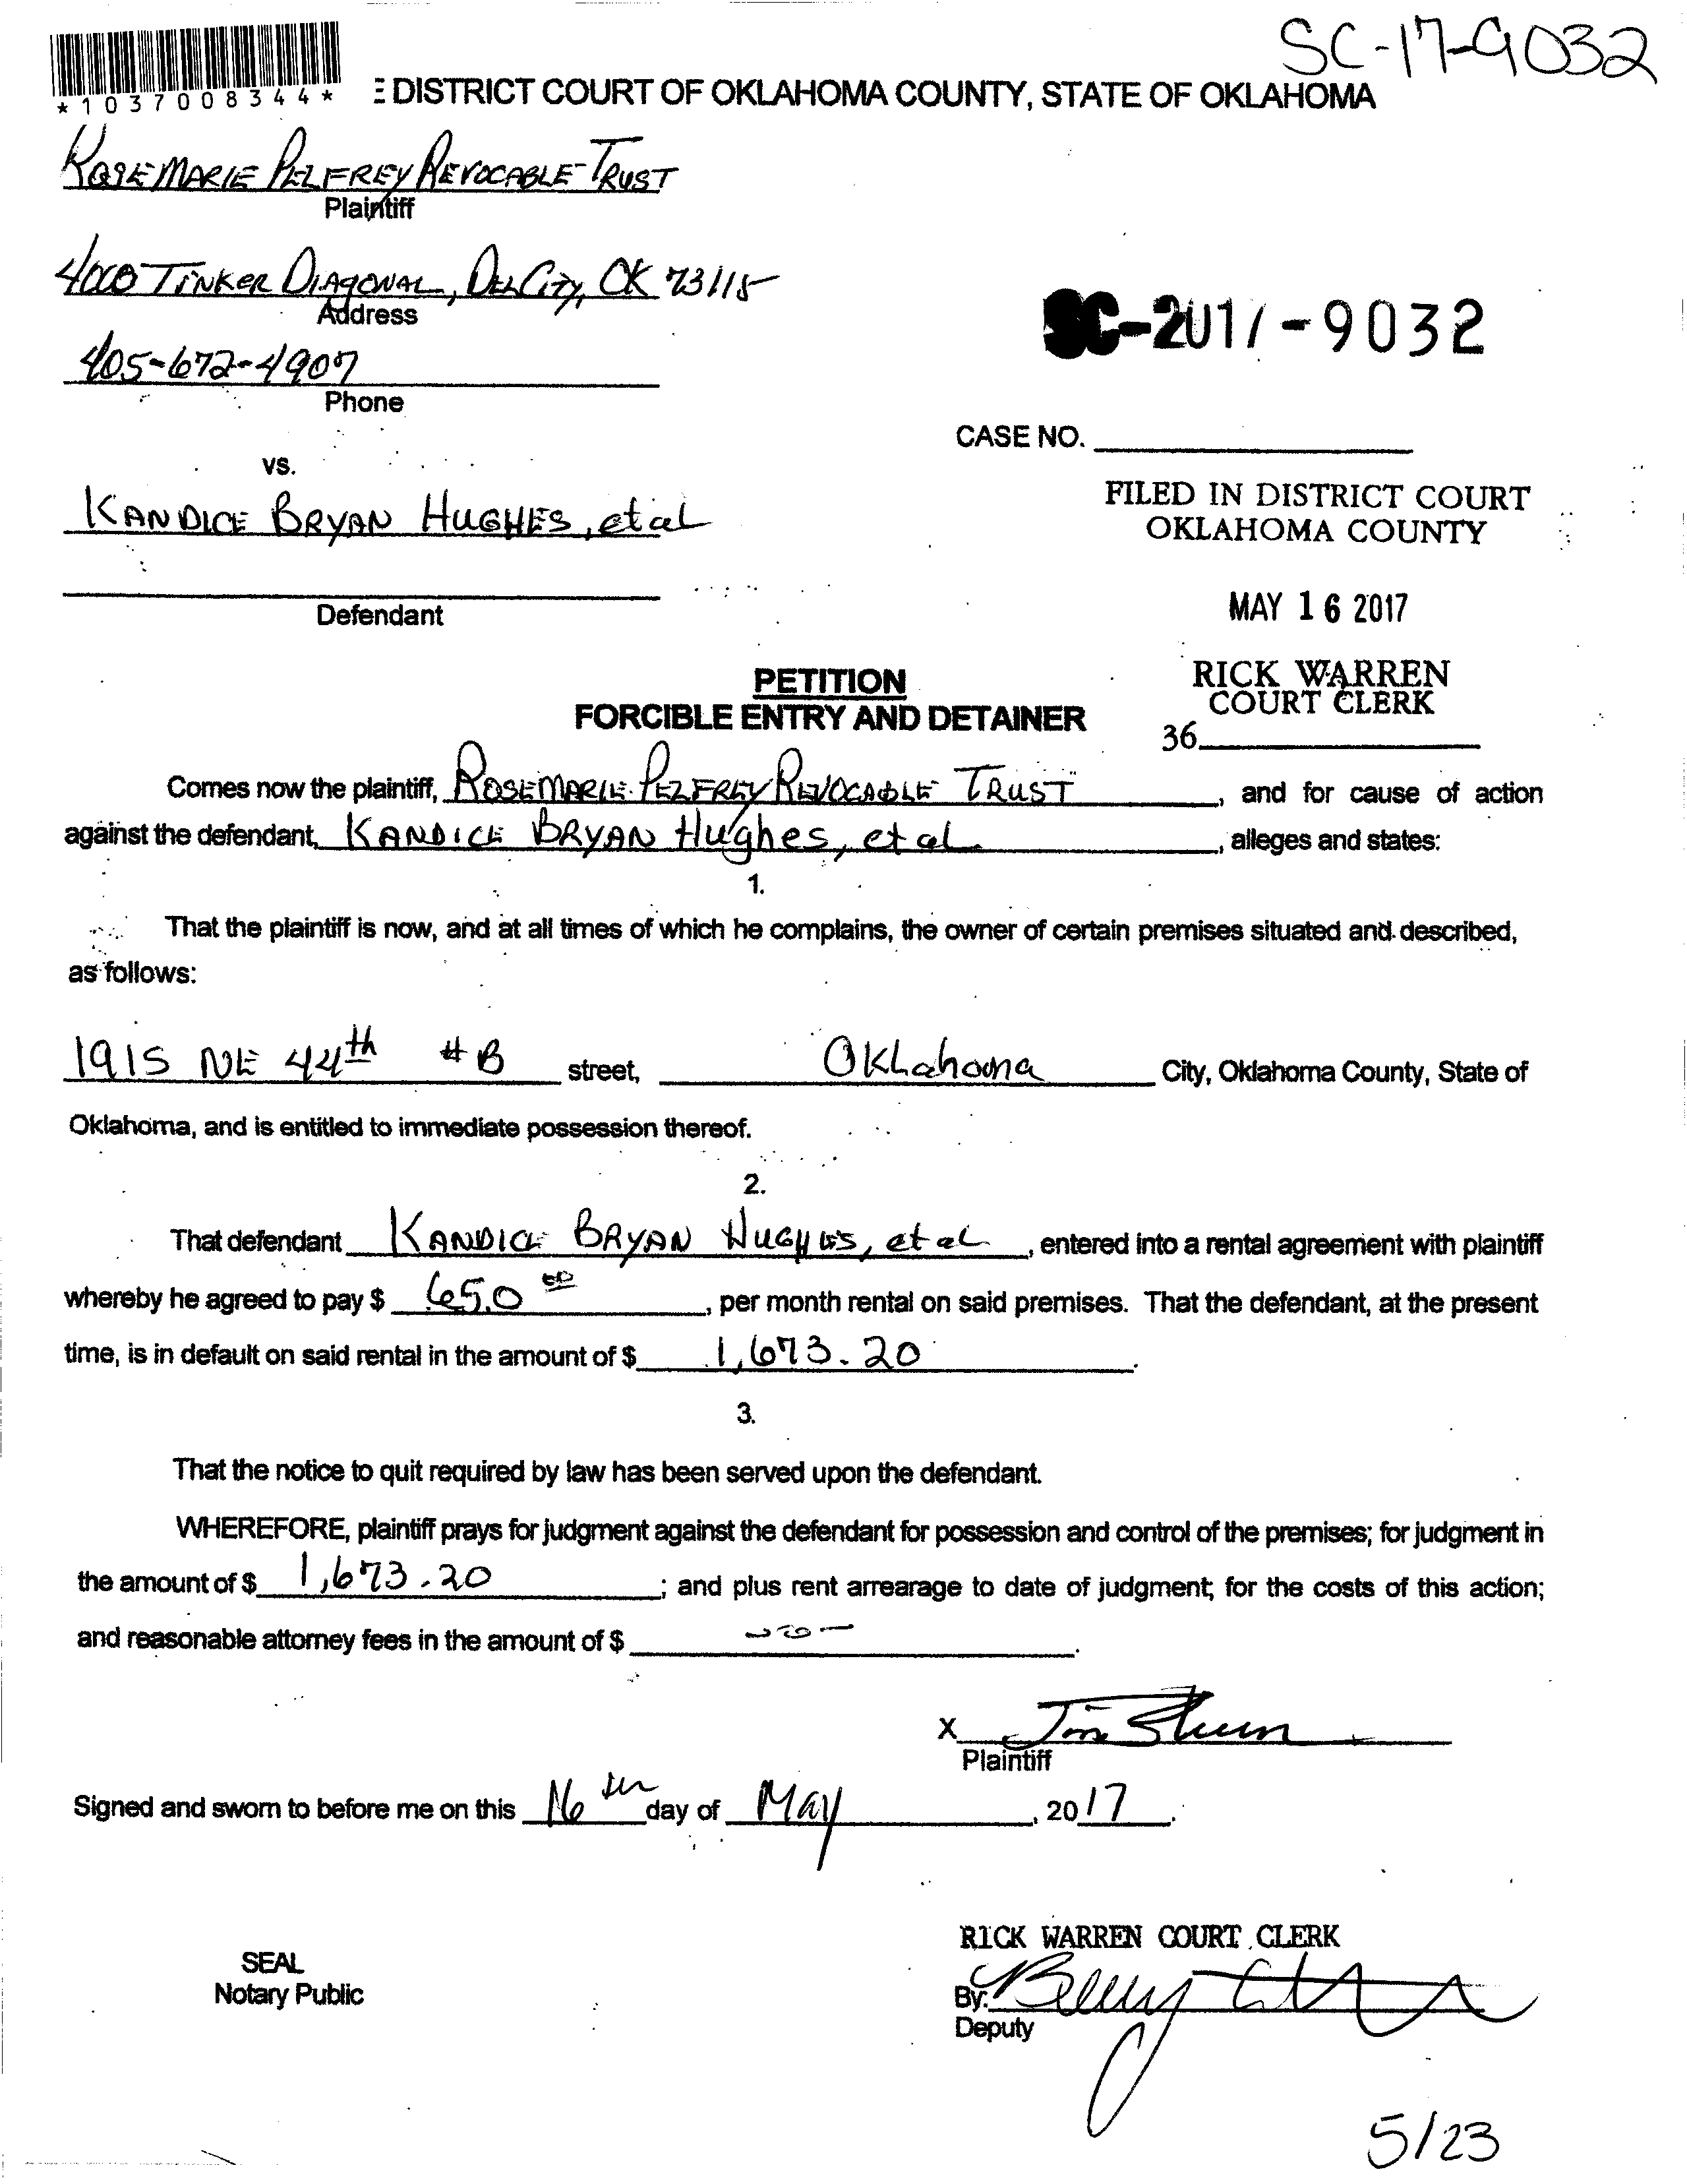 SC-17-9032
*1037008344*
E DISTRICT COURT OF OKLAHOMA COUNTY, STATE OF OKLAHOMA
ROSEMARIE PELFREY REVOCABLE TRUST
Plaintiff
4000 TINKER DIAGONAL, DEL CITY, OK 73115
Address
SC-2017-9032
405-672-4907
Phone
CASE NO.
vs.
KANDICE BRYAN HUGHES, et al
FILED IN DISTRICT COURT
OKLAHOMA COUNTY
Defendant
MAY 16 2017
PETITION
FORCIBLE ENTRY AND DETAINER
RICK WARREN
COURT CLERK
36
Comes now the plaintiff, ROSEMARIE PELFREY REVOCABLE TRUST, and for cause of action
against the defendant, KANDICE BRYAN Hughes, et al, alleges and states:
1.
That the plaintiff is now, and at all times of which he complains, the owner of certain premises situated and described,
as follows:
1915 NE 44th #B street, Oklahoma City, Oklahoma County, State of
Oklahoma, and is entitled to immediate possession thereof.
2.
That defendant KANDICE BRYAN HUGHES, et al, entered into a rental agreement with plaintiff
whereby he agreed to pay $ 650.00, per month rental on said premises. That the defendant, at the present
time, is in default on said rental in the amount of $ 1,673.20.
3.
That the notice to quit required by law has been served upon the defendant.
WHEREFORE, plaintiff prays for judgment against the defendant for possession and control of the premises; for judgment in
the amount of $ 1,673.20; and plus rent arrearage to date of judgment; for the costs of this action;
and reasonable attorney fees in the amount of $ -0-.
X
Plaintiff
Signed and sworn to before me on this 16th day of May, 2017.
RICK WARREN COURT CLERK
SEAL
Notary Public
By:
Deputy
5/23